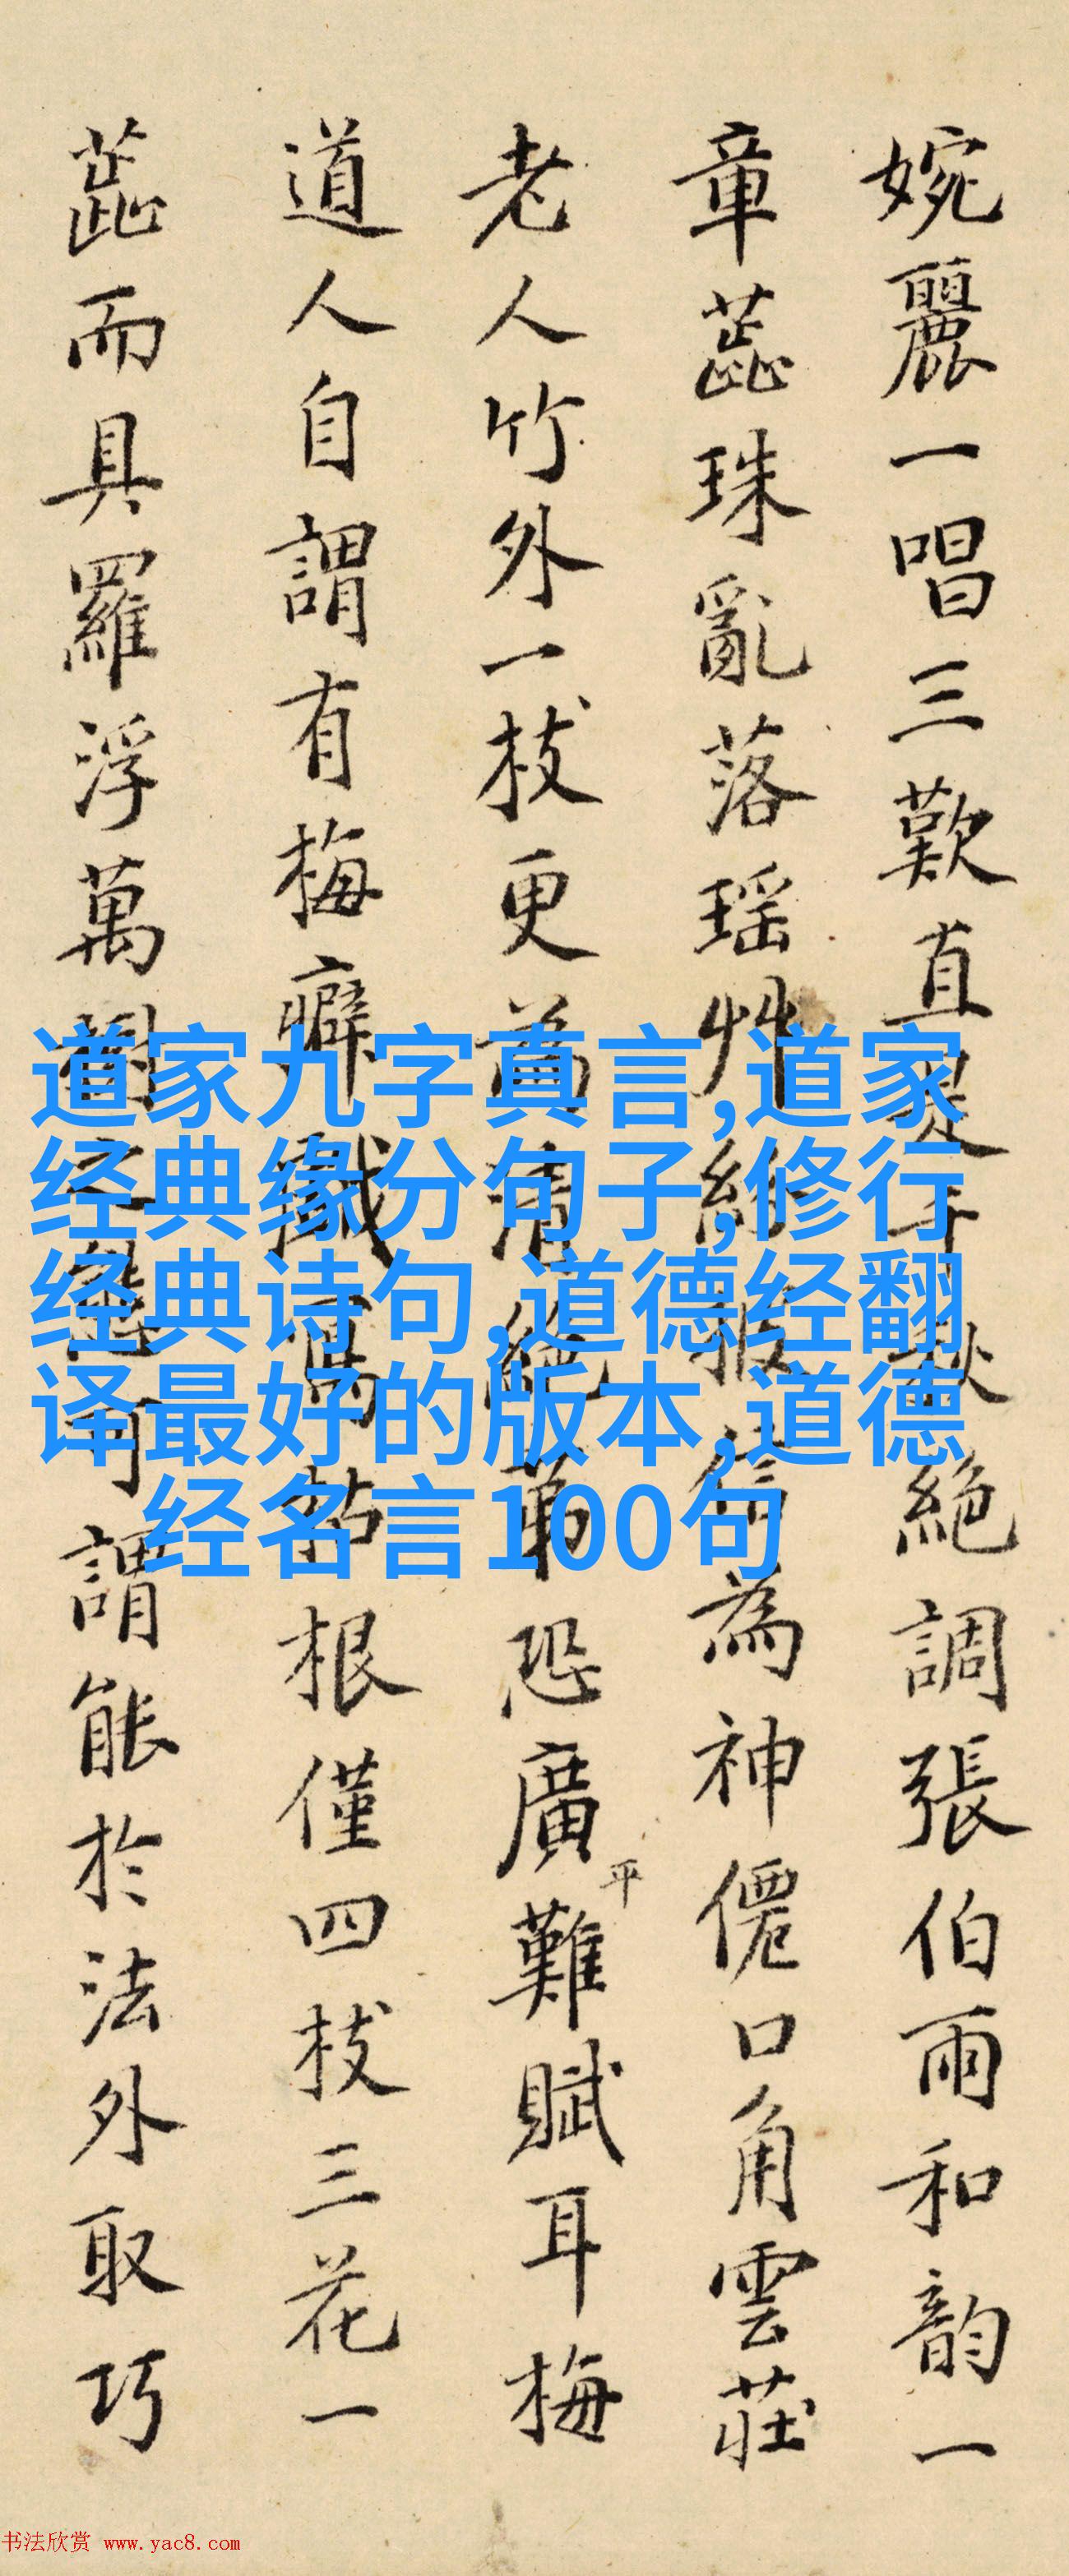 婉麗一唱三歎直是千秋絕調張伯雨和韵一
章蕊珠亂落瑶艸紛披信為神僊口角雲莊
老人竹外一枝更為清絕第恐廣平難賦耳梅
道人自謂有梅癖戲寫根僅四枝三花一
蕊而具羅浮萬樹之態可謂能於法外取巧
道家九字真言,道家
经典缘分句子,修行
经典诗句,道德经翻
译最好的版本,道德
经名言100句
书法欣赏 www.yac8.com